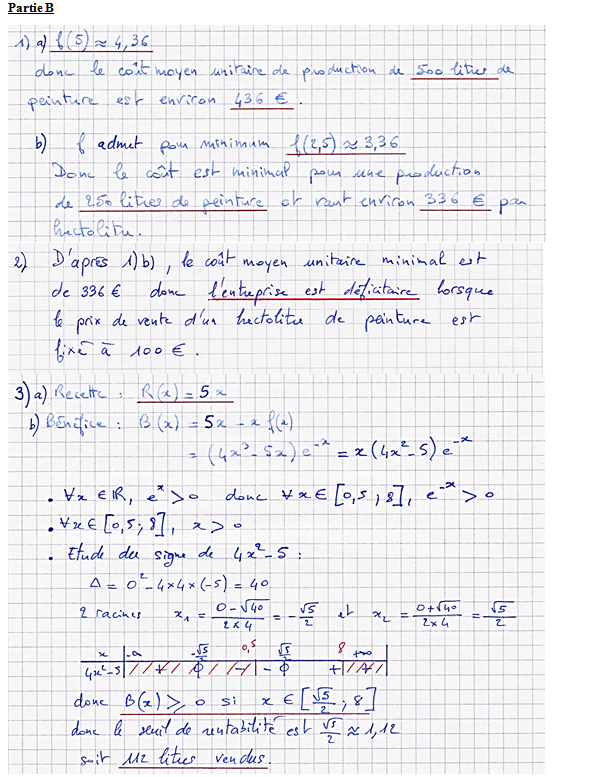 Partie B
1) a) f(5) ≈ 4,36
donc le coût moyen unitaire de production de 500 litres de
peinture est environ 436 €.
b) f admet pour minimum f(2,5) ≈ 3,36
Donc le coût est minimal pour une production
de 250 litres de peinture et vaut environ 336 € par
hectolitre.
2) D'après 1)b), le coût moyen unitaire minimal est
de 336 € donc l'entreprise est déficitaire lorsque
le prix de vente d'un hectolitre de peinture est
fixé à 100 €.
3) a) Recette : R(x) = 5x
b) Bénéfice : B(x) = 5x - x f(x)
= (4x³ - 5x) e⁻ˣ = x(4x² - 5) e⁻ˣ
• ∀x ∈ ℝ, eˣ > 0 donc ∀x ∈ [0,5 ; 8], e⁻ˣ > 0
• ∀x ∈ [0,5 ; 8], x > 0
• Etude du signe de 4x² - 5 :
Δ = 0² - 4×4×(-5) = 40
2 racines x₁ = (0 - √40)/(2×4) = -√5/2 et x₂ = (0 + √40)/(2×4) = √5/2
x -∞ -√5/2 0,5 √5/2 8 +∞
4x²-5 + 0 - - 0 + +
donc B(x) ≥ 0 si x ∈ [√5/2 ; 8]
donc le seuil de rentabilité est √5/2 ≈ 1,12
soit 112 litres vendus.